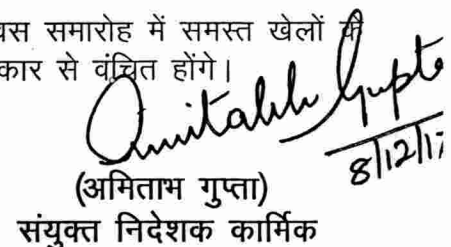 वस समारोह में समस्त खेलों की
कार से वंचित होंगे।
Amitabh Gupta
8/12/17
(अमिताभ गुप्ता)
संयुक्त निदेशक कार्मिक